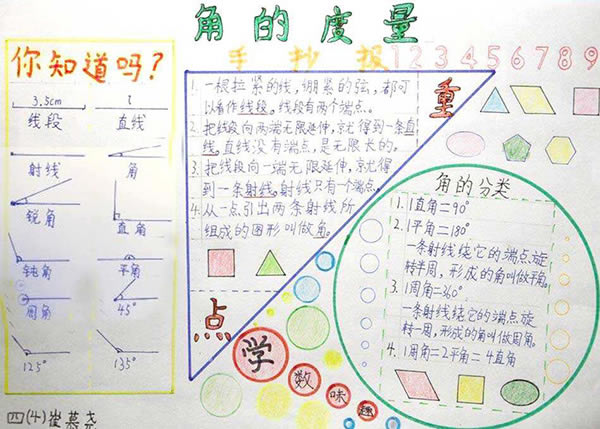 角的度量
手抄报123456789
你知道吗？
3.5cm
线段
直线
射线
角
锐角
直角
钝角
平角
周角
45°
125°
135°
四(4)崔慕尧
1.一根拉紧的线，绷紧的弦，都可
以看作线段。线段有两个端点。
2.把线段向两端无限延伸，就得到一条直
线。直线没有端点，是无限长的。
3.把线段向一端无限延伸，就得
到一条射线。射线只有个端点。
4.从一点引出两条射线所
组成的图形叫做角。
重
点
学
数
味
趣
角的分类
1.1直角=90°
2.1平角=180°
一条射线绕它的端点旋
转半周，形成的角叫做平角。
3.1周角=360°
一条射线绕它的端点旋
转一周，形成的角叫做周角。
4.1周角=2平角=4直角